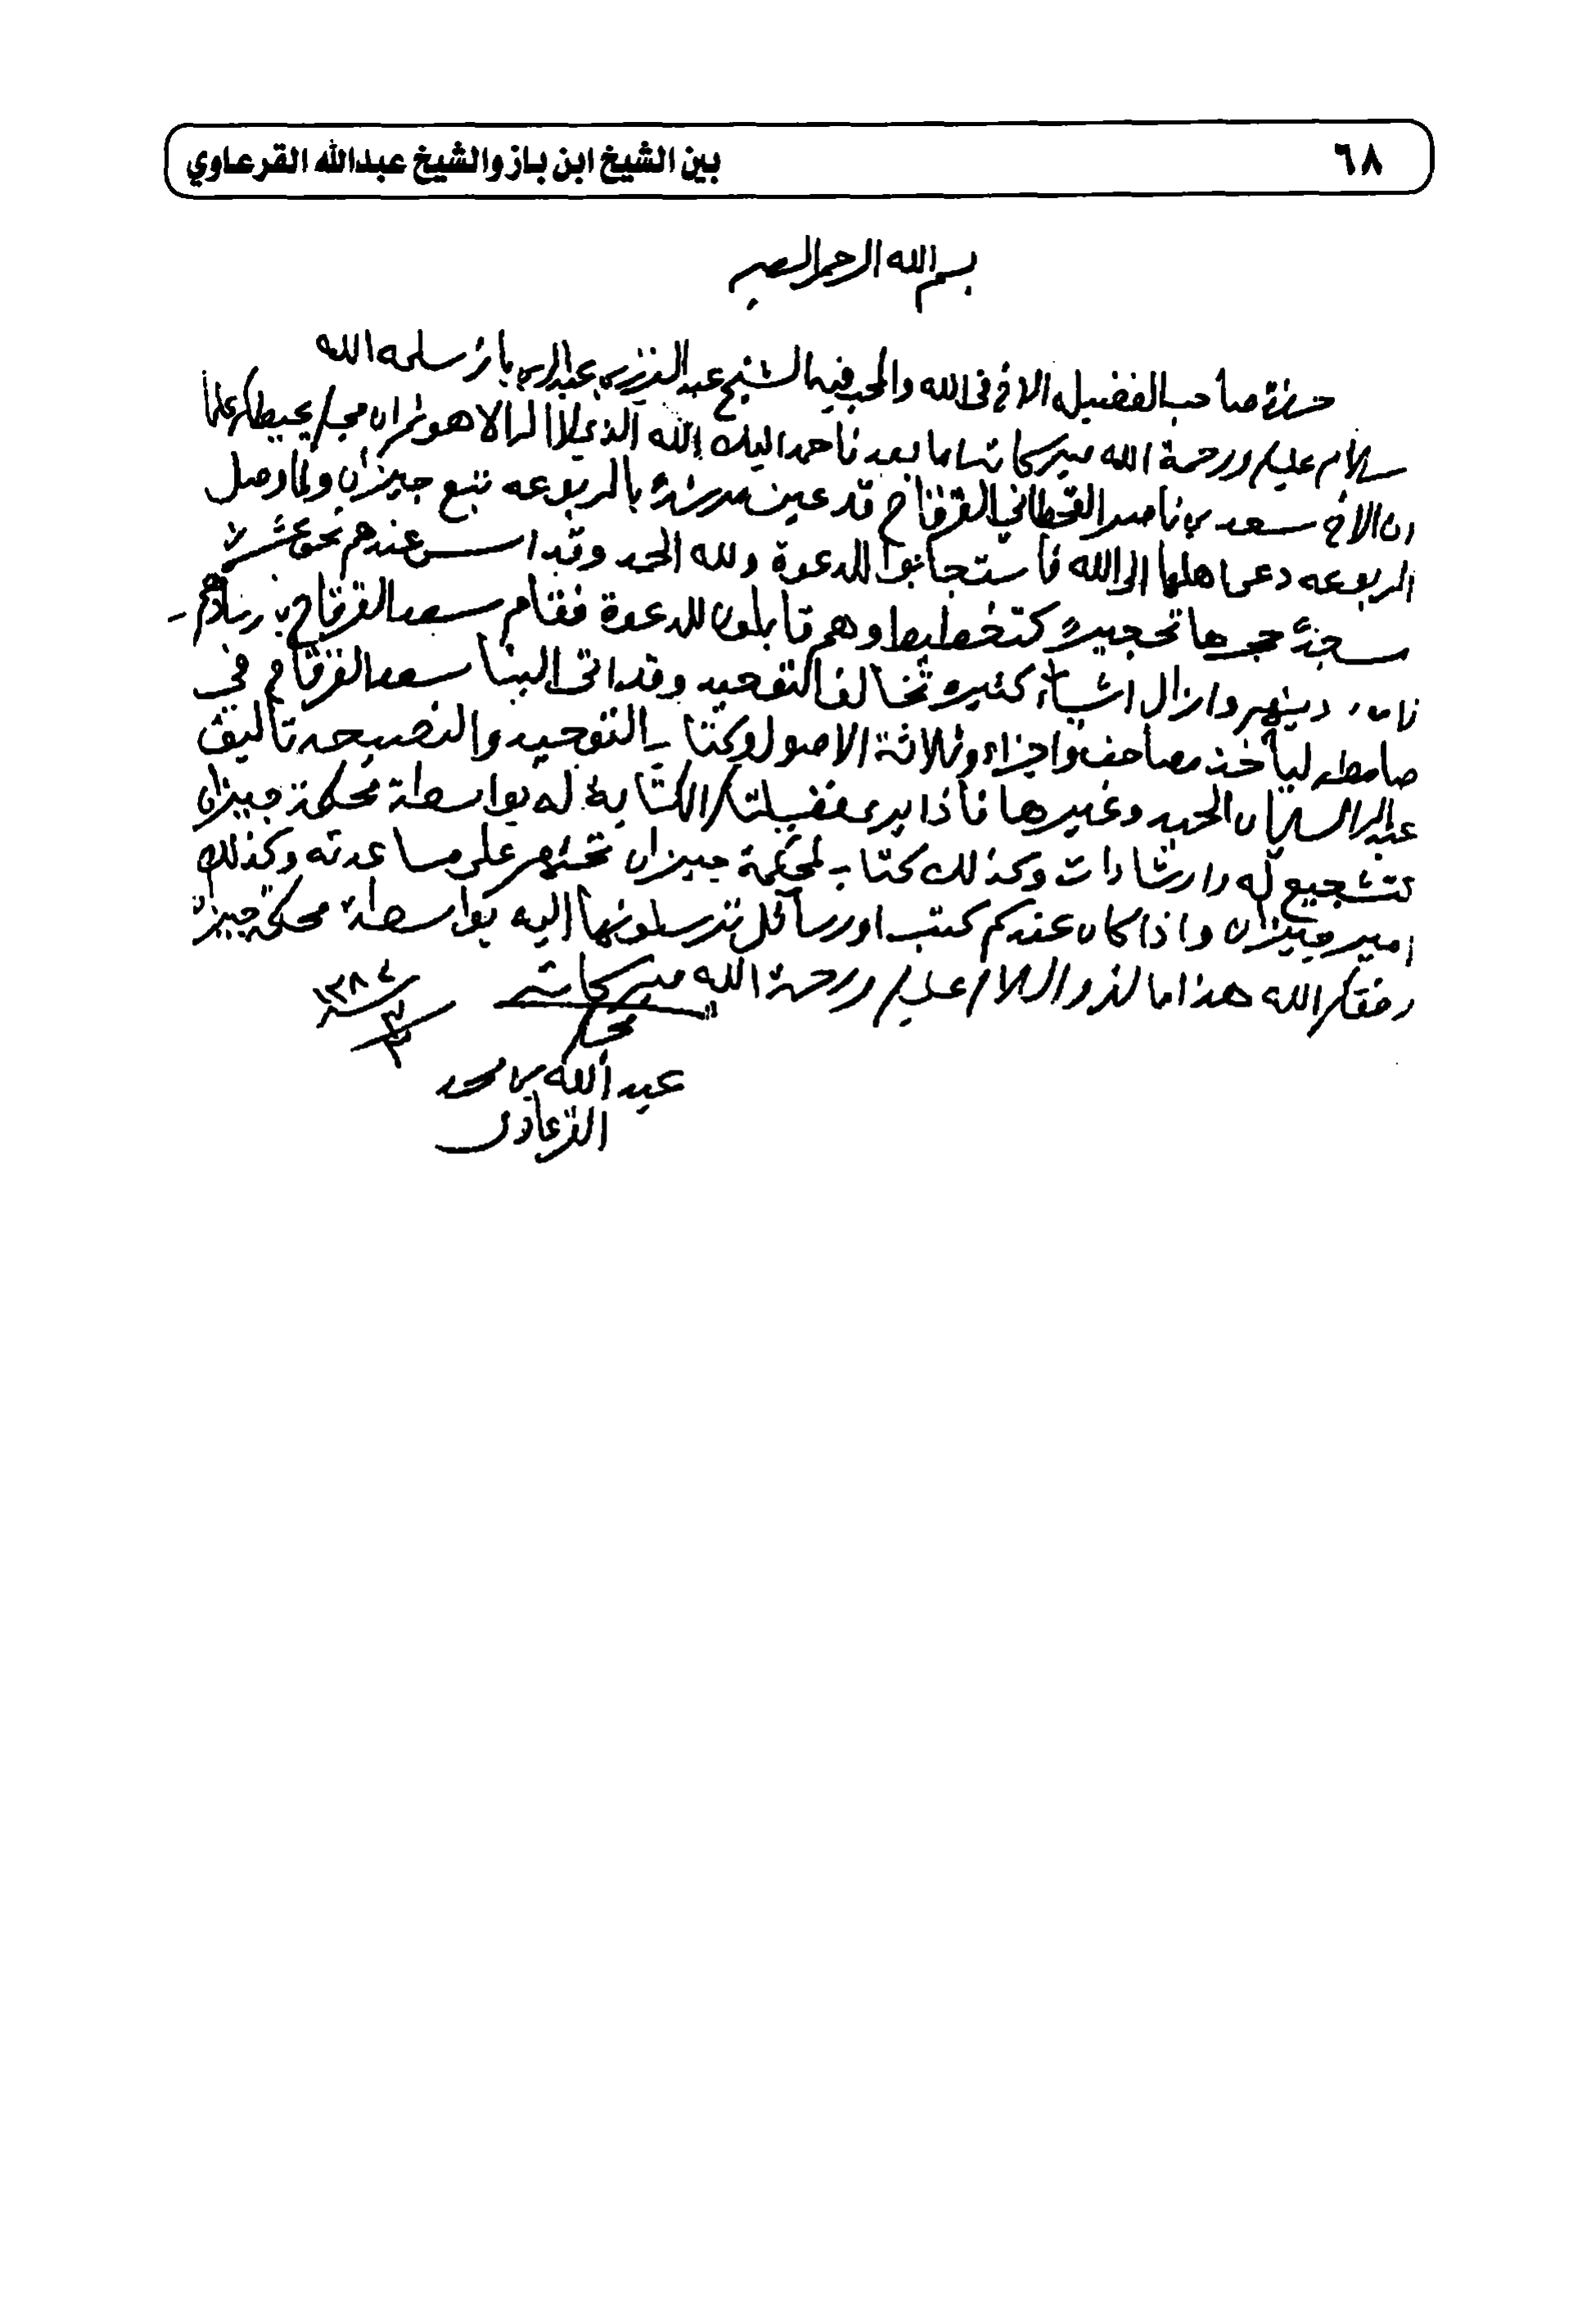 ٦٨
بين الشيخ ابن باز والشيخ عبدالله القرعاوي
بسم الله الرحمن الرحيم
حضرة صاحب الفضيله الاخ في الله والمحب فيه الشيخ عبد العزيز بن عبدالله بن باز سلمه الله
سلام عليكم ورحمة الله وبركاته اما بعد فاحمد اليك الله الذي لا اله الا هو ثم ان محبكم يحيطكم علما
ان الاخ سعد بن ناصر القحطاني القرقاح قد عين مدرسة بالربوعه تتبع جيزان ولما وصل
الربوعه دعى اهلها الى الله فاستجابوا للدعوة ولله الحمد وقد اسس عندهم نحو عشرة
مسجدة حجرها تحجيرة كتخطيط وهم قابلون للدعوة فقام سعد القرقاح بارشادهم
دينهم وازال اشياء كثيره تخالف التوحيد وقد اتى الينا سعد القرقاح في
صامطه ليأخذ مصاحف واجزاء وثلاثة الاصول وكتاب التوحيد والنصيحه تأليف
عبدالله السليمان الحميد وغيرها فاذا يرى فضيلتكم الكتابة له بواسطة محكمة جيزان
كتشجيع له وارشادات وكذلك كتاب لمحكمة جيزان تحثهم على مساعدته وكذلك
امير جيزان واذا كان عندكم كتب او رسائل ترسلونها اليه بواسطة محكمة جيزان
وفقكم الله هذا ما لزم والسلام عليكم ورحمة الله وبركاته
محبكم
عبد الله بن محمد
القرعاوى